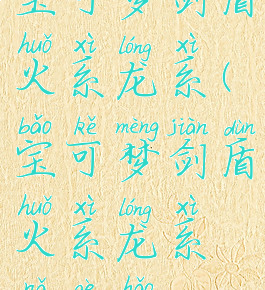 宝可梦剑盾
huǒ xì lóng xì
火系龙系(
bǎo kě mèng jiàn dùn
宝可梦剑盾
huǒ xì lóng xì
火系龙系